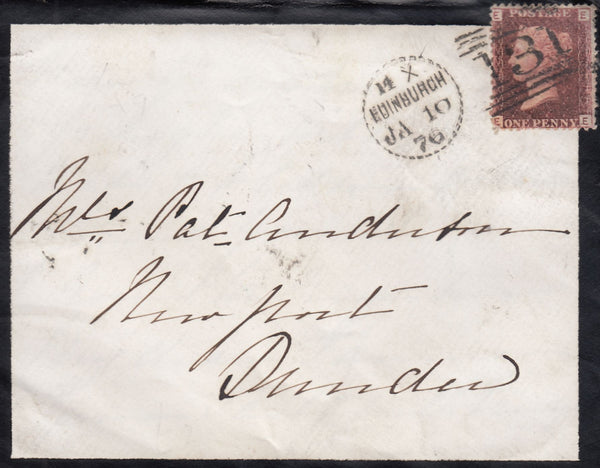 E POSTAGE E
131
E ONE PENNY E
14 X
EDINBURGH
JA 10
76
Mrs Pat. Anderson
Newport
Dundee